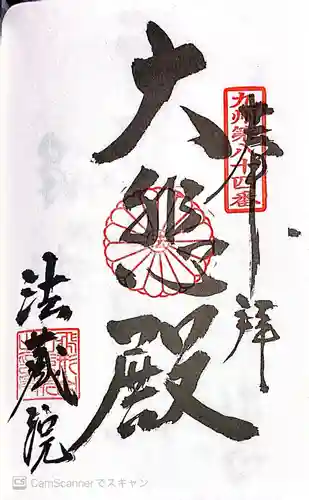 奉拝
九州第八十四番
大悲殿
法蔵院
CS CamScanner でスキャン